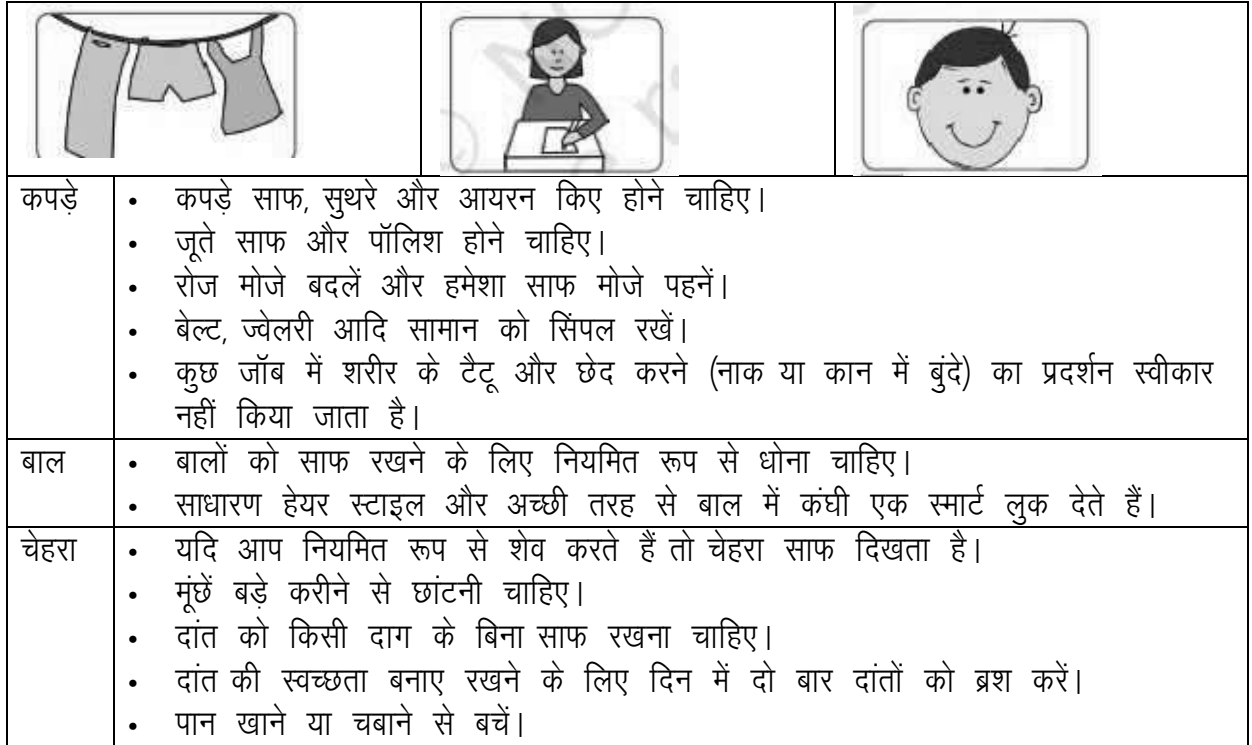 कपड़े • कपड़े साफ, सुथरे और आयरन किए होने चाहिए।
• जूते साफ और पॉलिश होने चाहिए।
• रोज मोजे बदलें और हमेशा साफ मोजे पहनें।
• बेल्ट, ज्वेलरी आदि सामान को सिंपल रखें।
• कुछ जॉब में शरीर के टैटू और छेद करने (नाक या कान में बुंदे) का प्रदर्शन स्वीकार
नहीं किया जाता है।
बाल • बालों को साफ रखने के लिए नियमित रूप से धोना चाहिए।
• साधारण हेयर स्टाइल और अच्छी तरह से बाल में कंघी एक स्मार्ट लुक देते हैं।
चेहरा • यदि आप नियमित रूप से शेव करते हैं तो चेहरा साफ दिखता है।
• मूंछें बड़े करीने से छांटनी चाहिए।
• दांत को किसी दाग के बिना साफ रखना चाहिए।
• दांत की स्वच्छता बनाए रखने के लिए दिन में दो बार दांतों को ब्रश करें।
• पान खाने या चबाने से बचें।